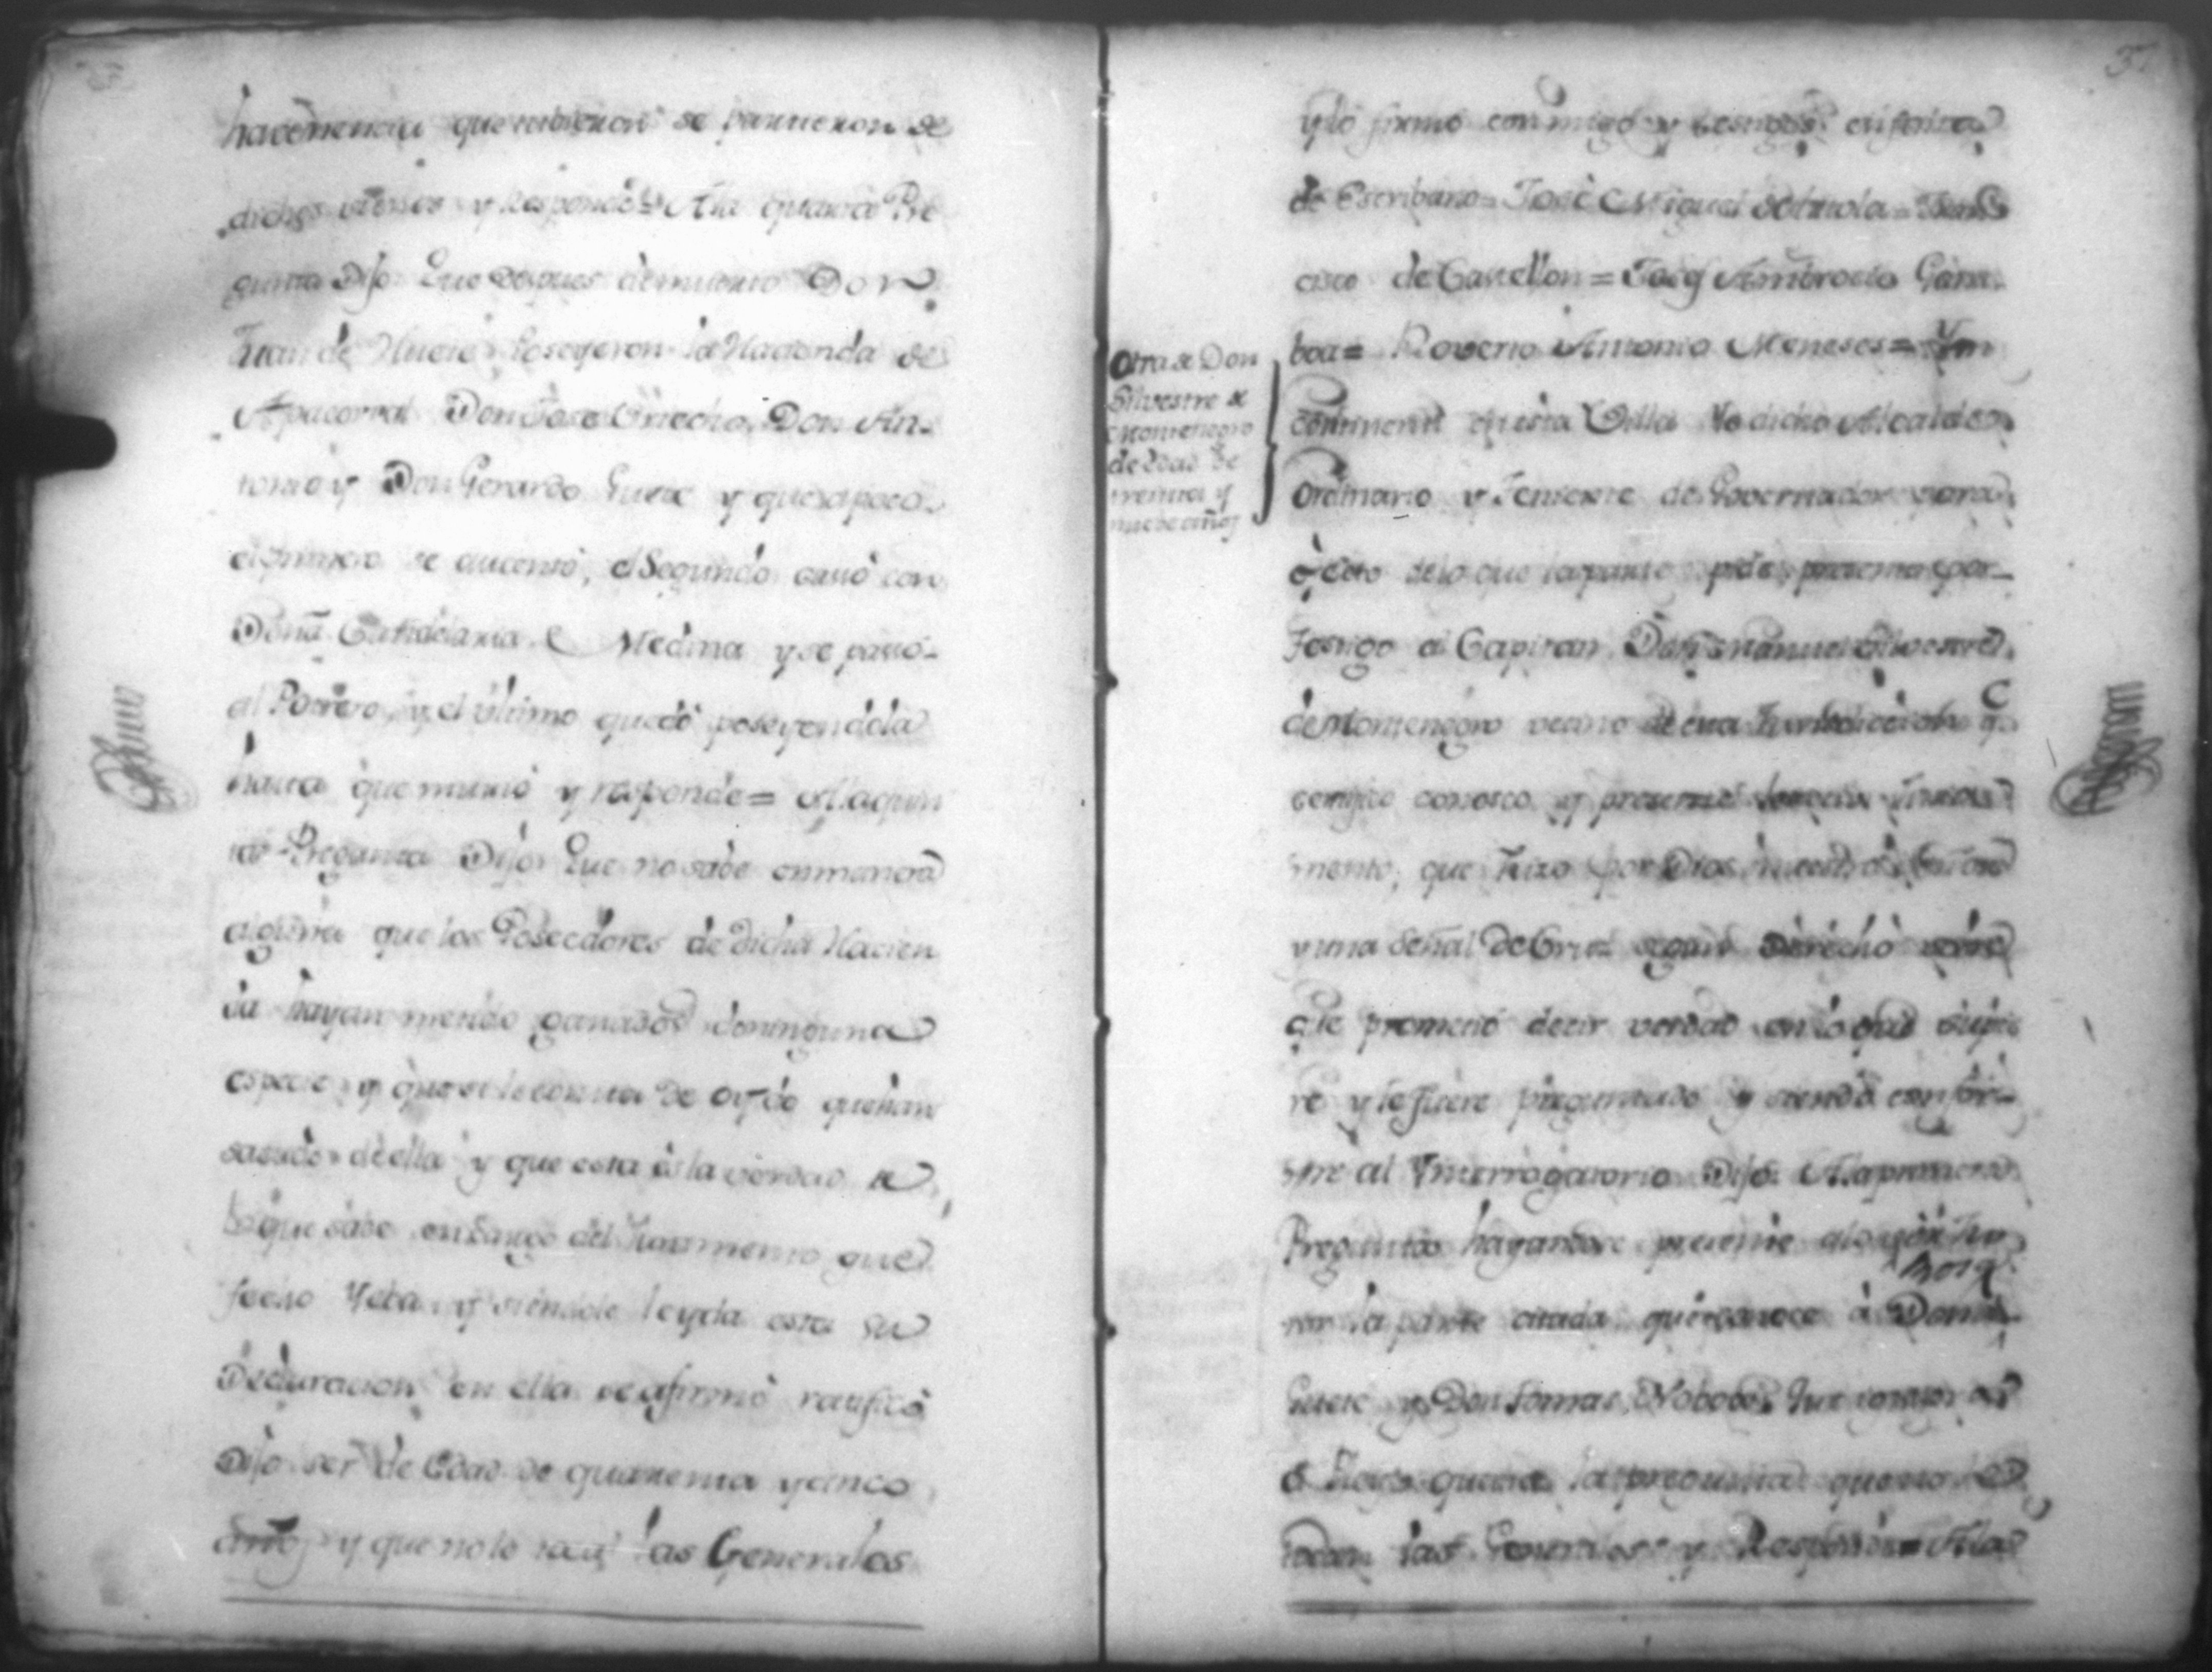 que tubieron se partieron de
dichos vienes y Responde = A la quarta Pre
gunta Dijo Que despues de muerto Don
Juan de Huete Poseyeron la Hacienda de
Apacorral Don Jose Don An
tonio y Don Gerardo Huete y que a poco
el primero se aucentó, el Segundo casó con
Doña Candelaria Medina y se pasó
al Potrero, y el ultimo quedó poseyendola
hasta que murió y responde = A la quin
ta Pregunta Dijo Que no sabe en manera
alguna que los Poseedores de dicha Hacien
da hayan metido ganados de ninguna
especie y que si le consta de oydo que han
sacado de ella y que esta es la verdad
lo que sabe en cargo del Juramento que
fecho lleba y siendole leyda esta su
Declaracion en ella se afirmó ratificó
Dijo ser de Edad de quarenta y cinco
años y que no le tocan las Generales
37
y lo firmó conmigo y testigos en falta
de Escribano = José Miguel = Fran
cisco de Castellon = José Ambrocio Gam
boa = Antonio Meneses = Yn
Otra de Don
Silvestre de
Montenegro
de edad de
treinta y
nueve años
continenti en esta Villa Yo dicho Alcalde
Ordinario y Teniente de Governador para
efecto de lo que la parte pide presentó por
Testigo al Capitan Don Manuel Silvestre
de Montenegro vecino de esta Jurisdiccion q.
certifico conosco y presente le recivi Jura
mento, que hizo por Dios nuestro Señor
y una Señal de Cruz segun derecho
que prometió decir verdad en lo que supie
re y le fuere preguntado y siendo confor
me al Ynterrogatorio Dijo A la primera
Pregunta
por la parte citada que conoce á Don
Huete y Don Tomas
la pregunta que no le
tocan las Generales y Responde = A la